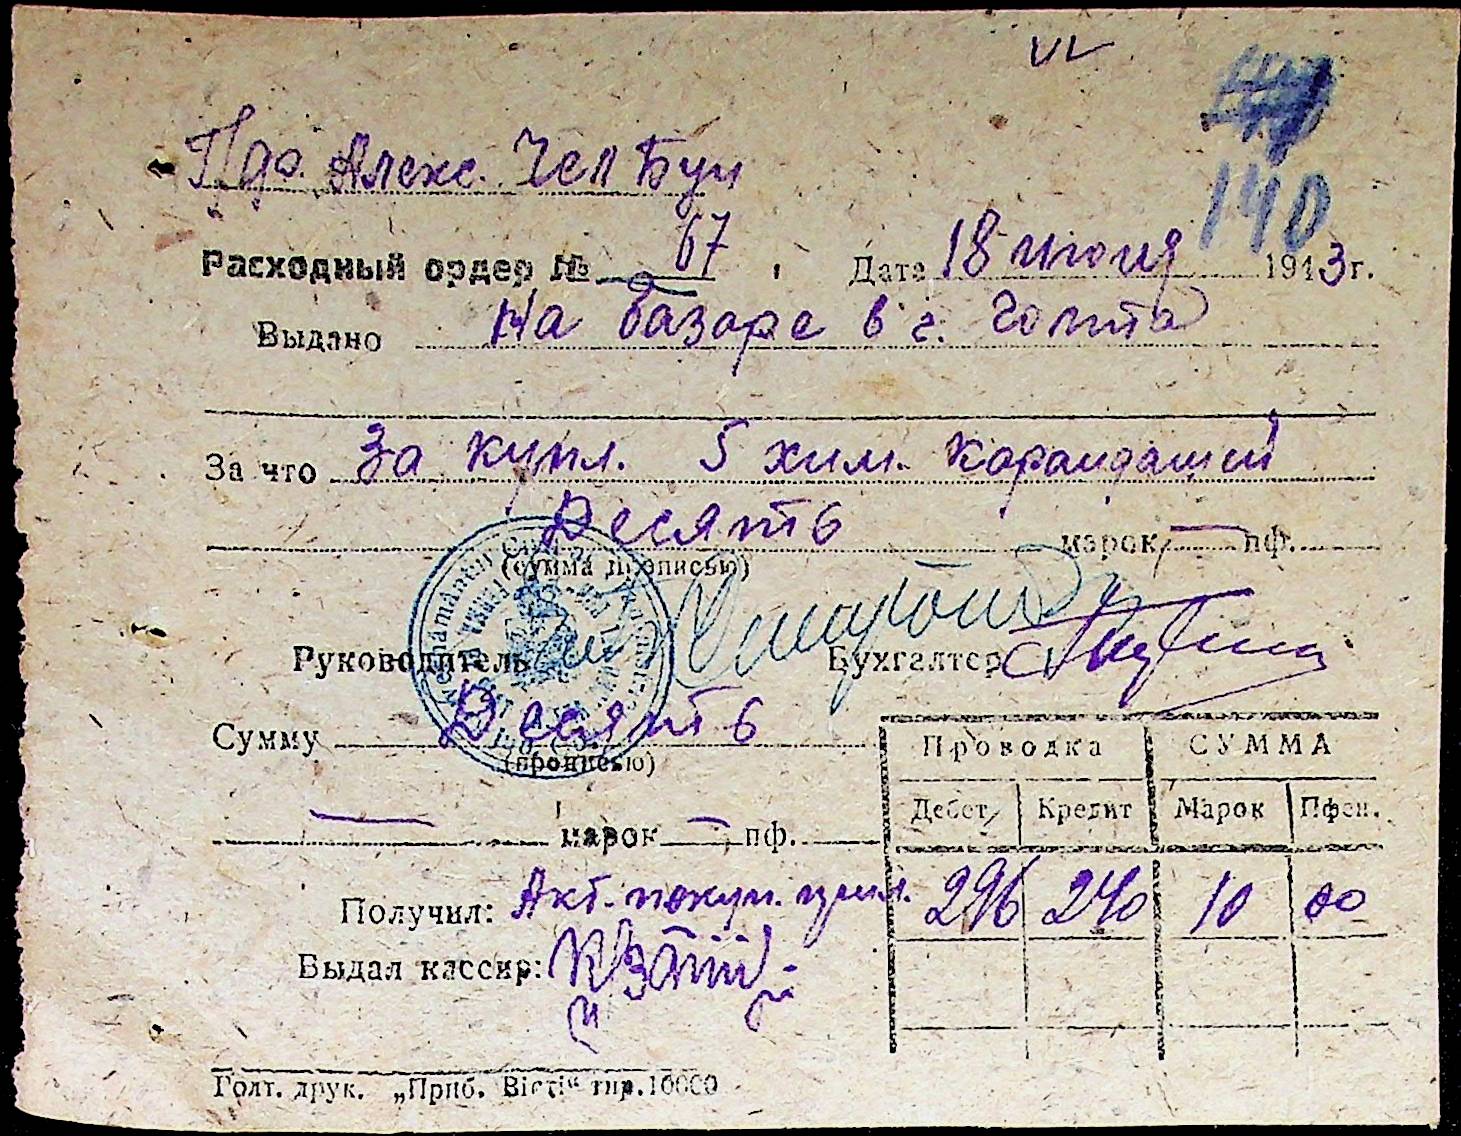 140
Алекс.
Расходный ордер № 67 Дата 18 июня 1943 г.
Выдано на базаре в г. Голта
За что За купл. 5 хим. карандашей
Десять марок — пф.
(сумма прописью)
Руководитель Бухгалтер
Сумму Десять
(прописью)
— марок — пф.
Проводка СУММА
Дебет Кредит Марок Пфен.
296 240 10 00
Получил: Акт. покуп. прил.
Выдал кассир:
Голт. друк. „Приб. Вісті“ тир. 10000